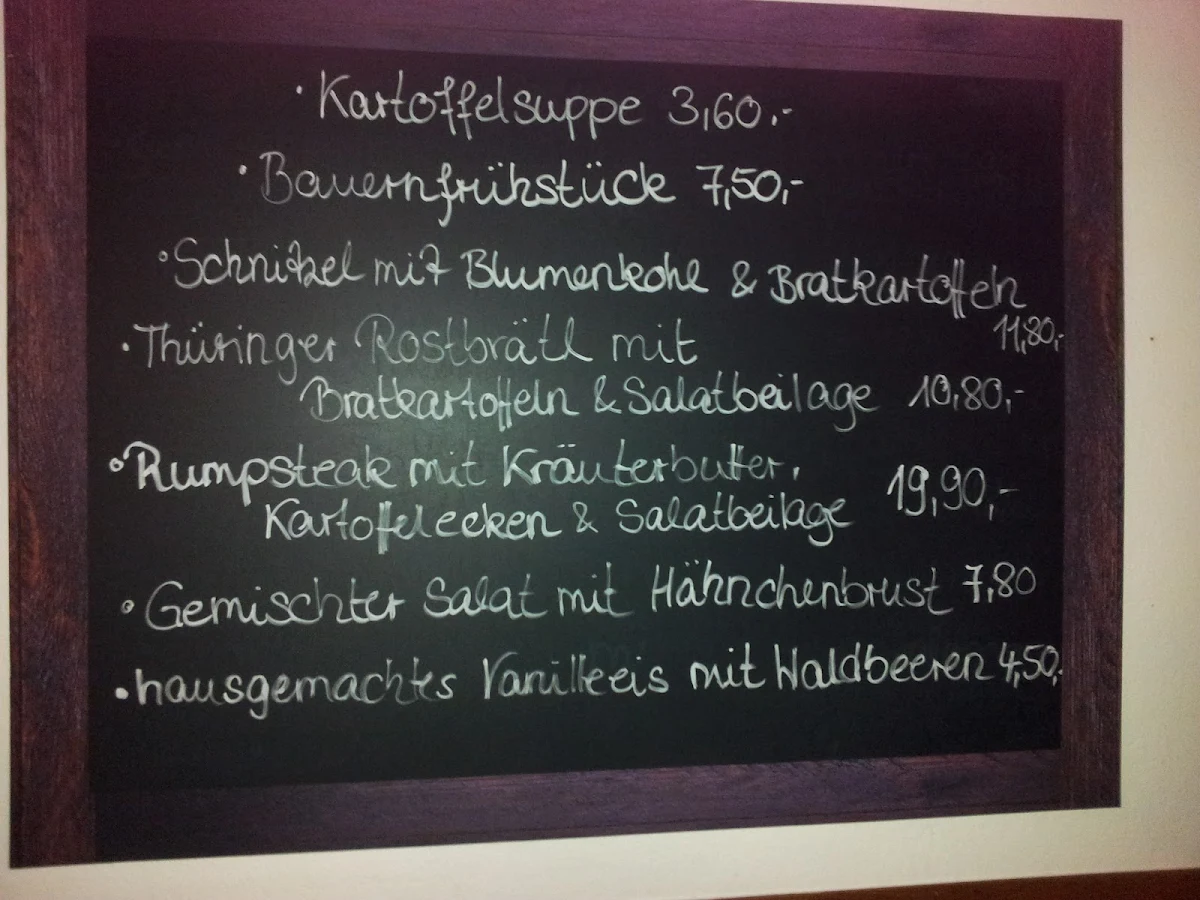 · Kartoffelsuppe 3,60.-
· Bauernfrühstück 7,50,-
° Schnitzel mit Blumenkohl & Bratkartoffeln
11,80,-
· Thüringer Rostbrätl mit
Bratkartoffeln & Salatbeilage 10,80,-
° Rumpsteak mit Kräuterbutter,
Kartoffelecken & Salatbeilage 19,90,-
° Gemischter Salat mit Hähnchenbrust 7,80
· hausgemachtes Vanilleeis mit Waldbeeren 4,50,-